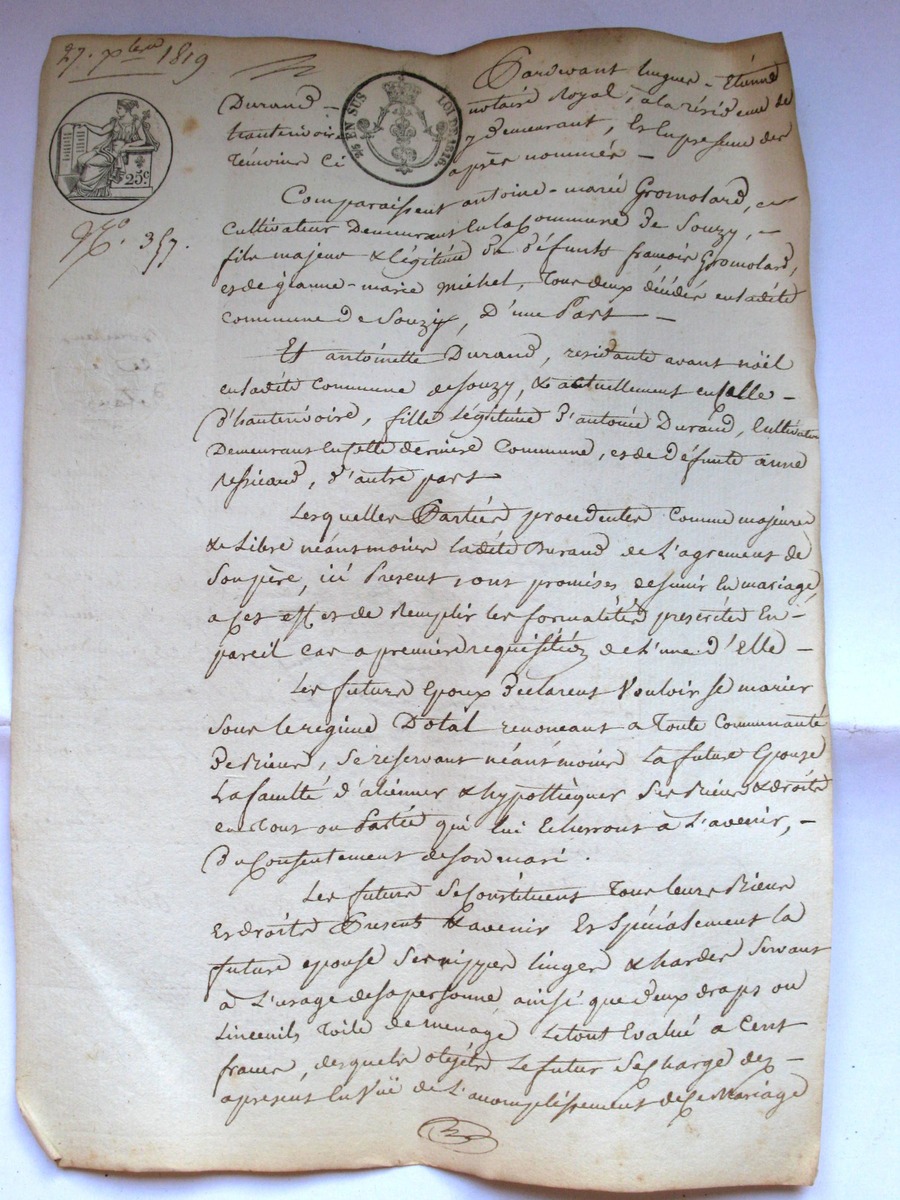 27. Xbre 1819
Pardevant hugues-Etienne
Durand- notaire Royal, a la résidence de
hautervoire y demeurant, Et En presence des
Témoins Ci après nommés-
25 EN SUS LOI DE 1816.
25c
No. 357.
Comparaissent antoine-marie Gromolard,
Cultivateur Demeurant En la Commune De Souzy,-
fils majeur & légitime de défunts françois Gromolard,
et de jeanne-marie michel, Tous deux décédés en ladite
Commune De Souzy, D'une Part-
Et antoinette Durand, residante avant noël
en ladite Commune de Souzy, & actuellement en Celle-
d'hautervoire, fille Légitime d'antoine Durand, Cultivateur
Demeurant En Celle derniere Commune, et de défunte anne
d'autre part
Lesquelles Parties procedentes Comme majeures
& Libre néantmoins ladite Durand de L'agrement de
Son père, ici Present, ont promises de sunir En mariage,
a Ces effet et de Remplir les formalités prescrites En-
pareil Cas a premiere requisition de L'une d'Elle-
Les futurs Epoux Declarent Vouloir se marier
Sous le regime Dotal renoncant a Toute Communauté
De Biens, Se reservant néantmoins La future Epouse
La faculté d'aliener & hypothèquer Ses Biens & droits
en Tout ou Partie qui lui Echerront à L'avenir,-
du Consentement de son mari.
Les futurs Se Constituent Tous leurs Biens
Et droits Present & avenir Et Spécialement la
future epouse Ses nippes linges & hardes Servant
à L'usage de sa personne, ainsi que deux draps ou
Linceuils Toile de menage Le tout Evalué a Cent
francs, desquels objets Le futur Se Charge des-
apresent En Vüe de L'accomplissement de Ce Mariage